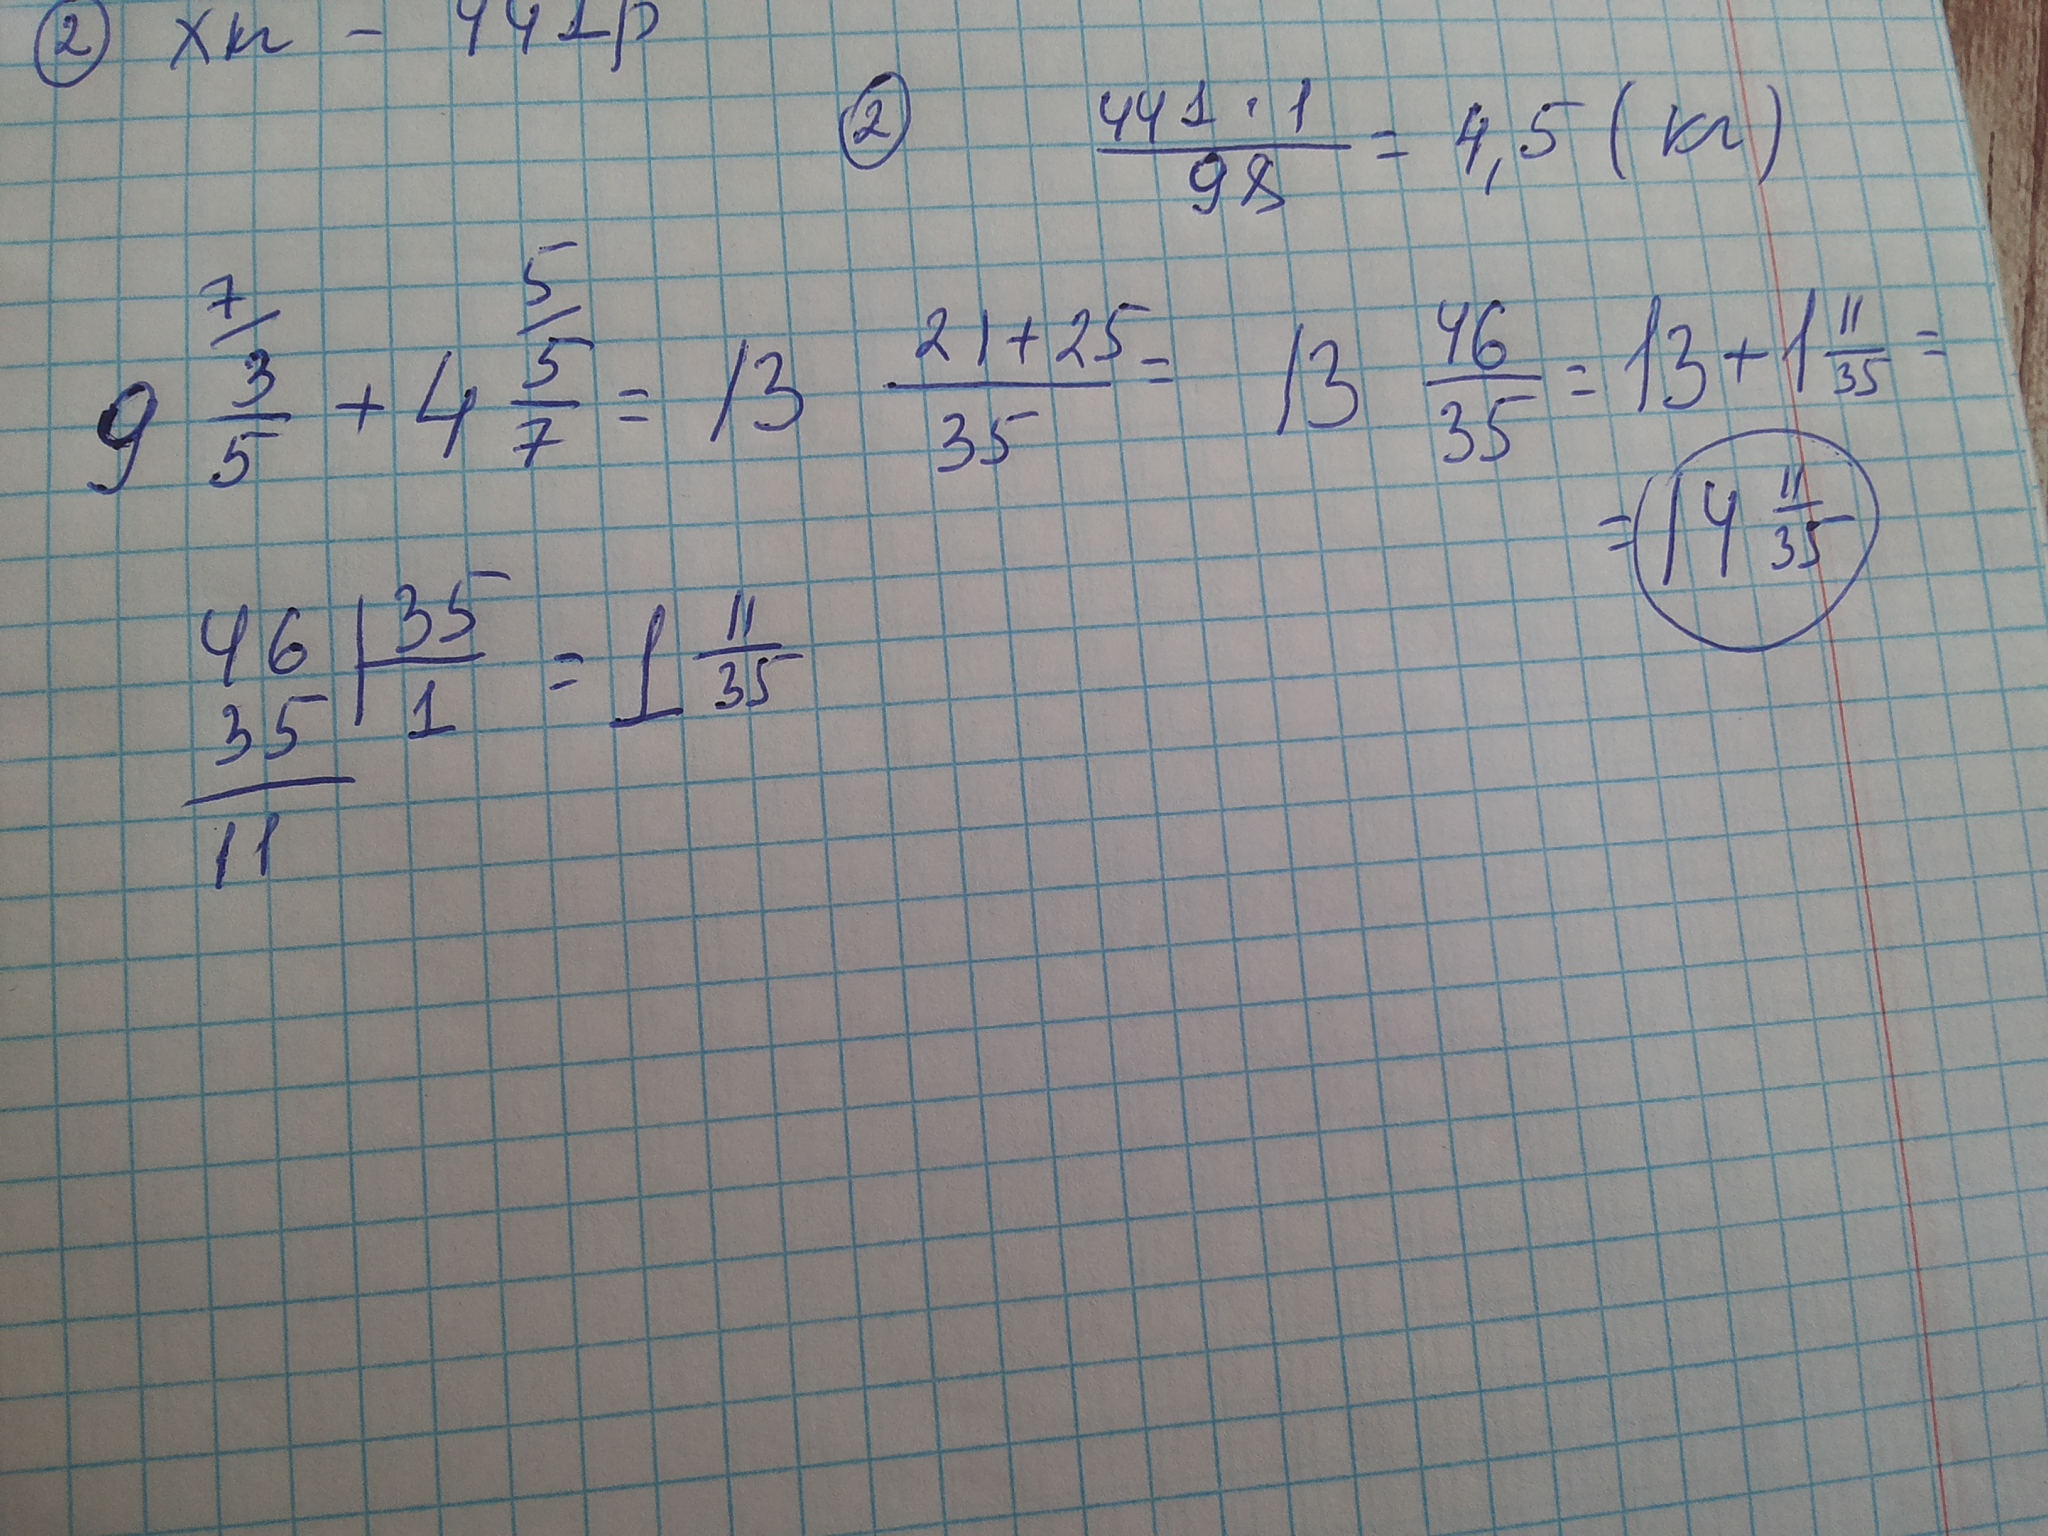 ② x кг - 441р
② 441 · 1 / 98 = 4,5 (кг)
9 3/5 (7/) + 4 5/7 (5/) = 13 (21+25)/35 = 13 46/35 = 13 + 1 11/35 =
= 14 11/35
46 | 35 = 1 11/35
35 | 1
11